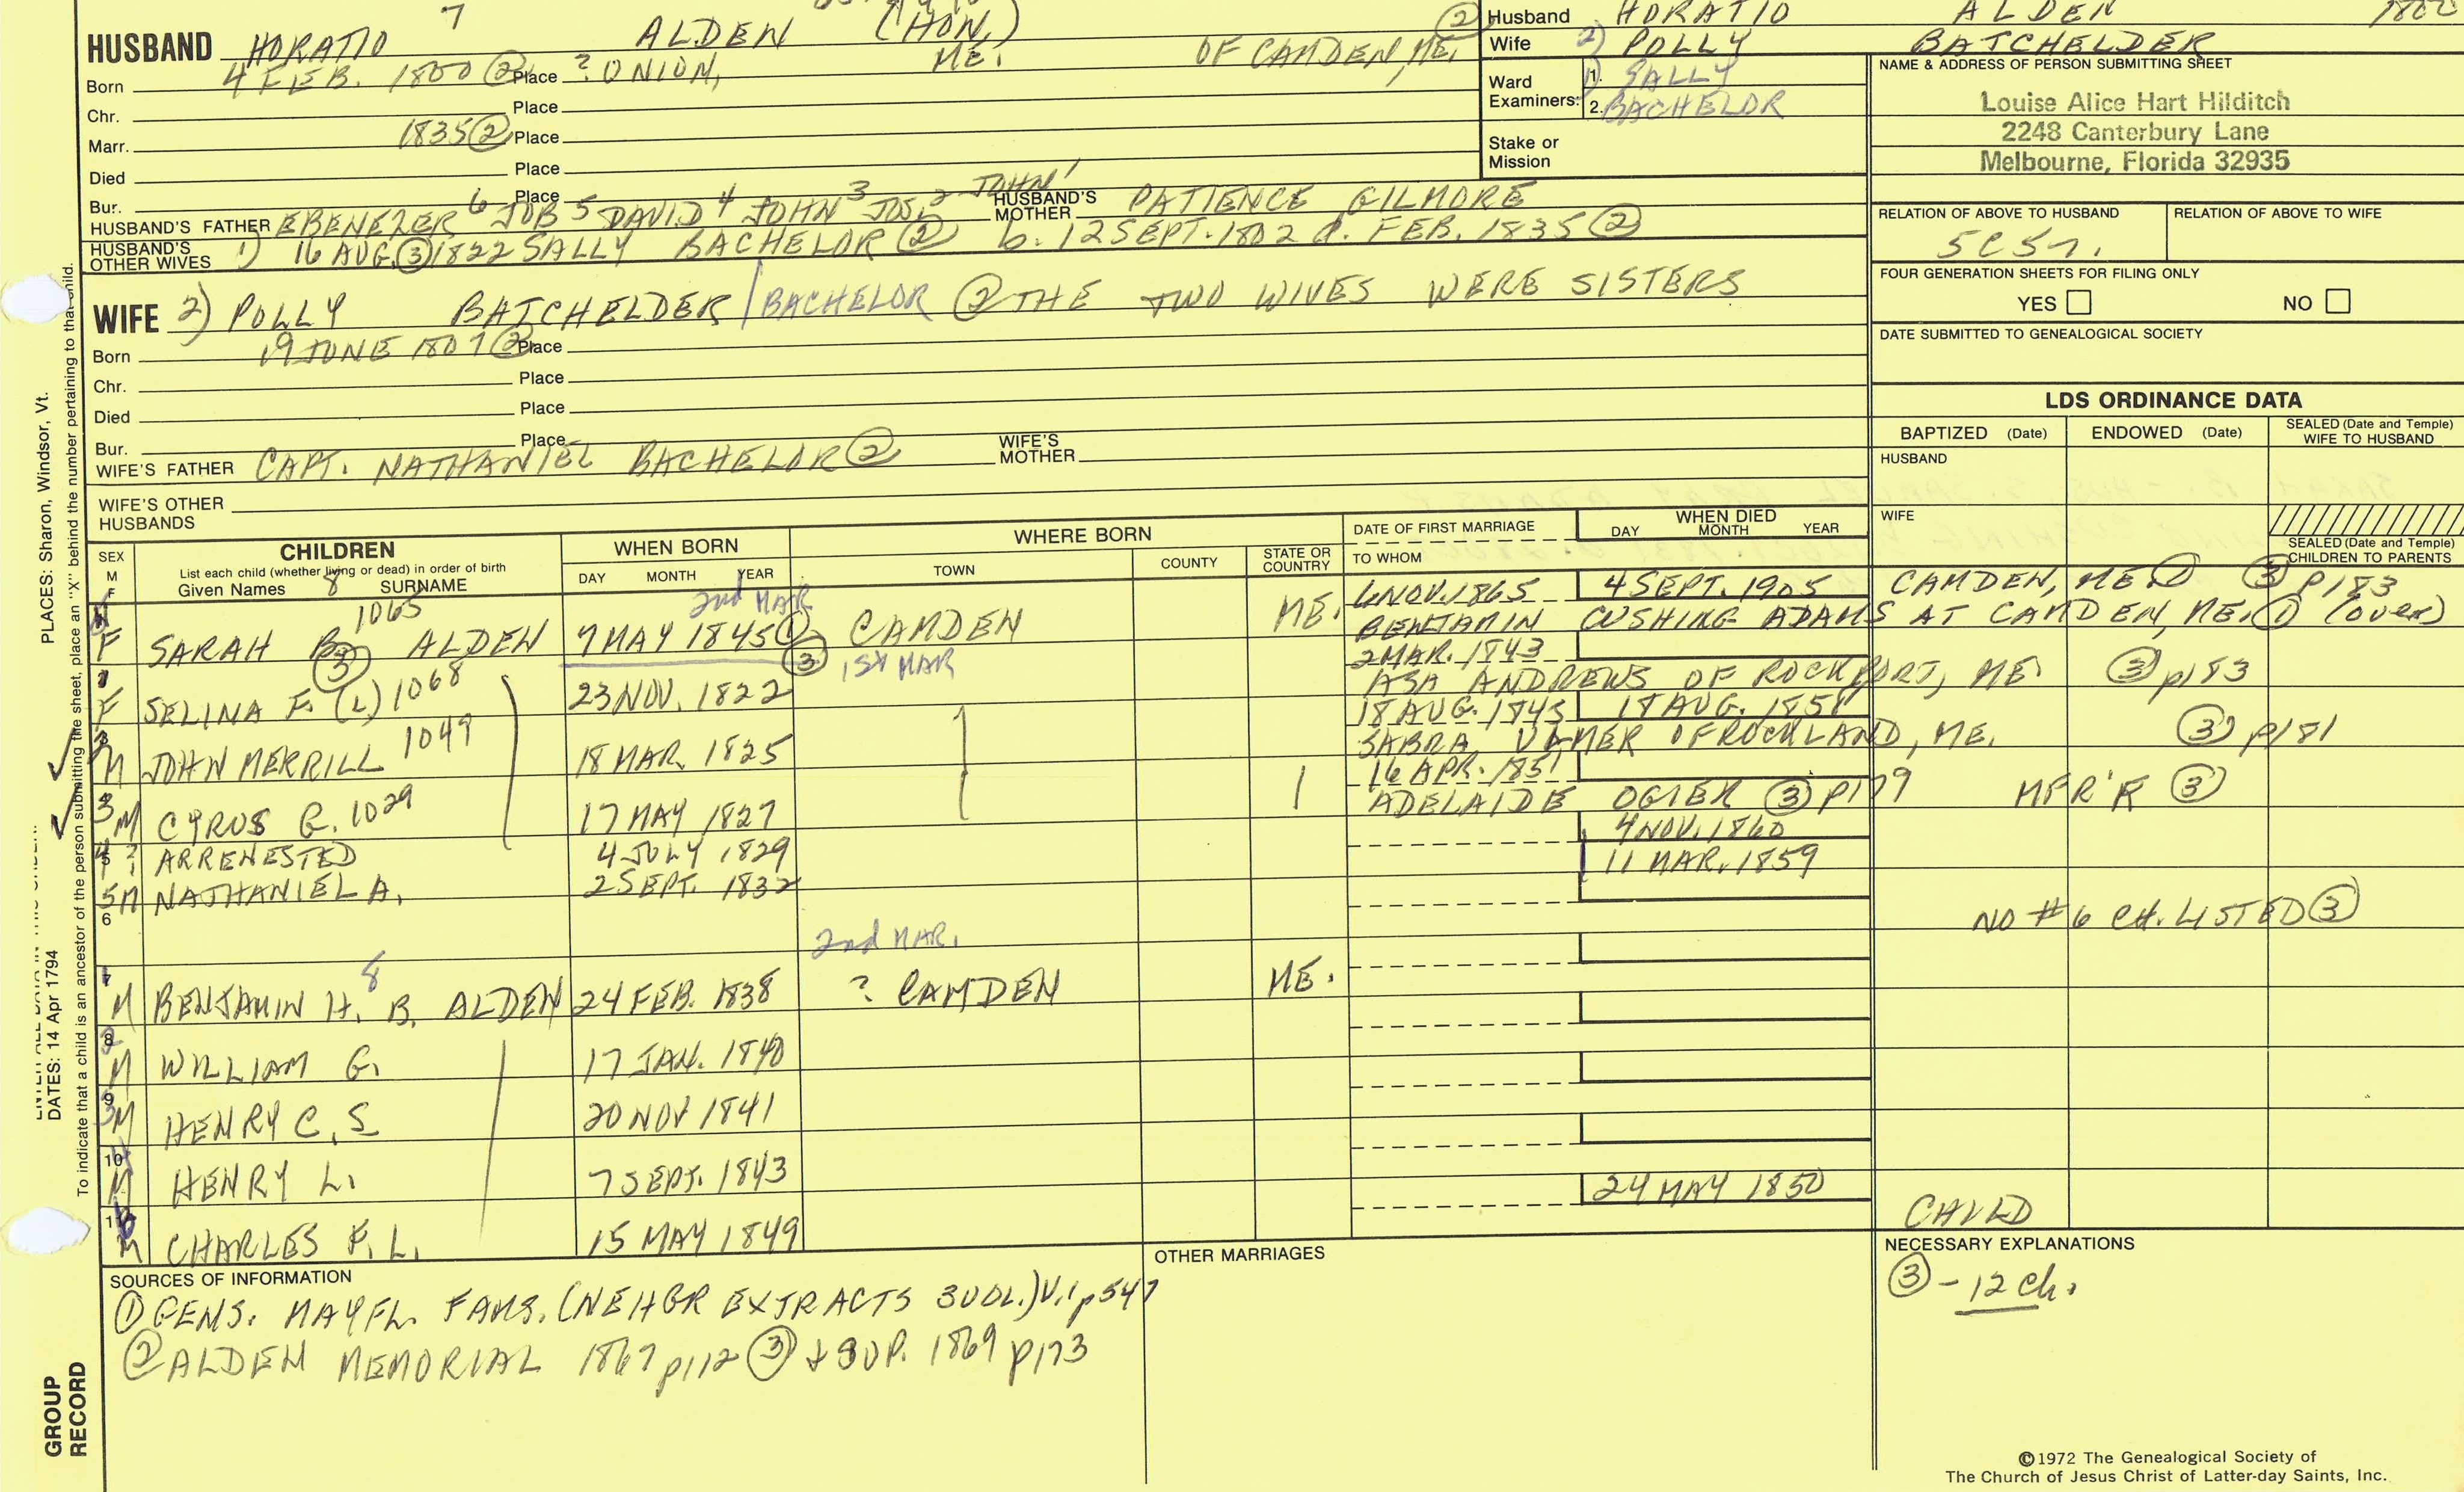 7
HUSBAND HORATIO ALDEN (HON.)
Born 4 FEB. 1800 ② Place ? UNION, ME. OF CAMDEN, ME.
Chr. Place
Marr. 1835 ② Place
Died Place
Bur. Place
HUSBAND'S FATHER EBENEZER 6 JOB 5 DAVID 4 JOHN 3 JOS. 2 JOHN 1 HUSBAND'S MOTHER PATIENCE GILMORE
HUSBAND'S OTHER WIVES 1) 16 AUG. ③ 1822 SALLY BACHELOR ② b. 12 SEPT. 1802 d. FEB. 1835 ②
WIFE 2) POLLY BATCHELDER / BACHELOR ② THE TWO WIVES WERE SISTERS
Born 19 JUNE 1807 ② Place
Chr. Place
Died Place
Bur. Place
WIFE'S FATHER CAPT. NATHANIEL BACHELOR ② WIFE'S MOTHER
WIFE'S OTHER HUSBANDS
② Husband HORATIO ALDEN 1800
Wife 2) POLLY BATCHELDER
Ward Examiners: 1. 1) SALLY
2. BACHELOR
Stake or Mission
NAME & ADDRESS OF PERSON SUBMITTING SHEET
Louise Alice Hart Hilditch
2248 Canterbury Lane
Melbourne, Florida 32935
RELATION OF ABOVE TO HUSBAND RELATION OF ABOVE TO WIFE
FOUR GENERATION SHEETS FOR FILING ONLY
YES NO
DATE SUBMITTED TO GENEALOGICAL SOCIETY
LDS ORDINANCE DATA
BAPTIZED (Date) ENDOWED (Date) SEALED (Date and Temple) WIFE TO HUSBAND
HUSBAND
WIFE
SEALED (Date and Temple) CHILDREN TO PARENTS
SEX M F CHILDREN WHEN BORN WHERE BORN DATE OF FIRST MARRIAGE WHEN DIED
List each child (whether living or dead) in order of birth
Given Names 8 SURNAME DAY MONTH YEAR TOWN COUNTY STATE OR COUNTRY TO WHOM DAY MONTH YEAR
1065 2nd MAR 6 NOV. 1865 4 SEPT. 1905 CAMDEN, ME ① ③ p183
F SARAH B. ③ ALDEN 7 MAY 1845 ① ③ CAMDEN ME. BENJAMIN CUSHING ADAMS AT CAMDEN, ME. ① (over)
1st MAR 2 MAR. 1843
F SELINA F. (L) 1068 23 NOV. 1822 ASA ANDREWS OF ROCKPORT, ME. ③ p183
3 18 AUG. 1845 18 AUG. 1851
M JOHN MERRILL 1049 18 MAR. 1825 SABRA ULMER OF ROCKLAND, ME. ③ p181
16 APR. 1851
3 M CYRUS G. 1029 17 MAY 1827 ADELAIDE OGIER ③ p179 MFR'R ③
4 ? ARRENESTED 4 JULY 1829 4 NOV. 1860
5 M NATHANIEL A. 2 SEPT. 1832 11 MAR. 1859
6 NO #6 CH. LISTED ③
2nd MAR.
7 8
M BENJAMIN H. B. ALDEN 24 FEB. 1838 ? CAMDEN ME.
8
M WILLIAM G. 17 JAN. 1840
9
M HENRY C. S 20 NOV 1841
10
M HENRY L. 7 SEPT. 1843
24 MAY 1850 CHILD
11
M CHARLES F. L. 15 MAY 1849
SOURCES OF INFORMATION
① GENS. MAYFL. FAMS. (NEHGR EXTRACTS 3 VOL.) V. 1 p547
② ALDEN MEMORIAL 1867 p112 ③ + SUP. 1869 p173
OTHER MARRIAGES
NECESSARY EXPLANATIONS
③ - 12 Ch.
©1972 The Genealogical Society of
The Church of Jesus Christ of Latter-day Saints, Inc.
PLACES: Sharon, Windsor, Vt.
DATES: 14 Apr 1794
To indicate that a child is an ancestor of the person submitting the sheet, place an "X" behind the number pertaining to that child.
GROUP
RECORD